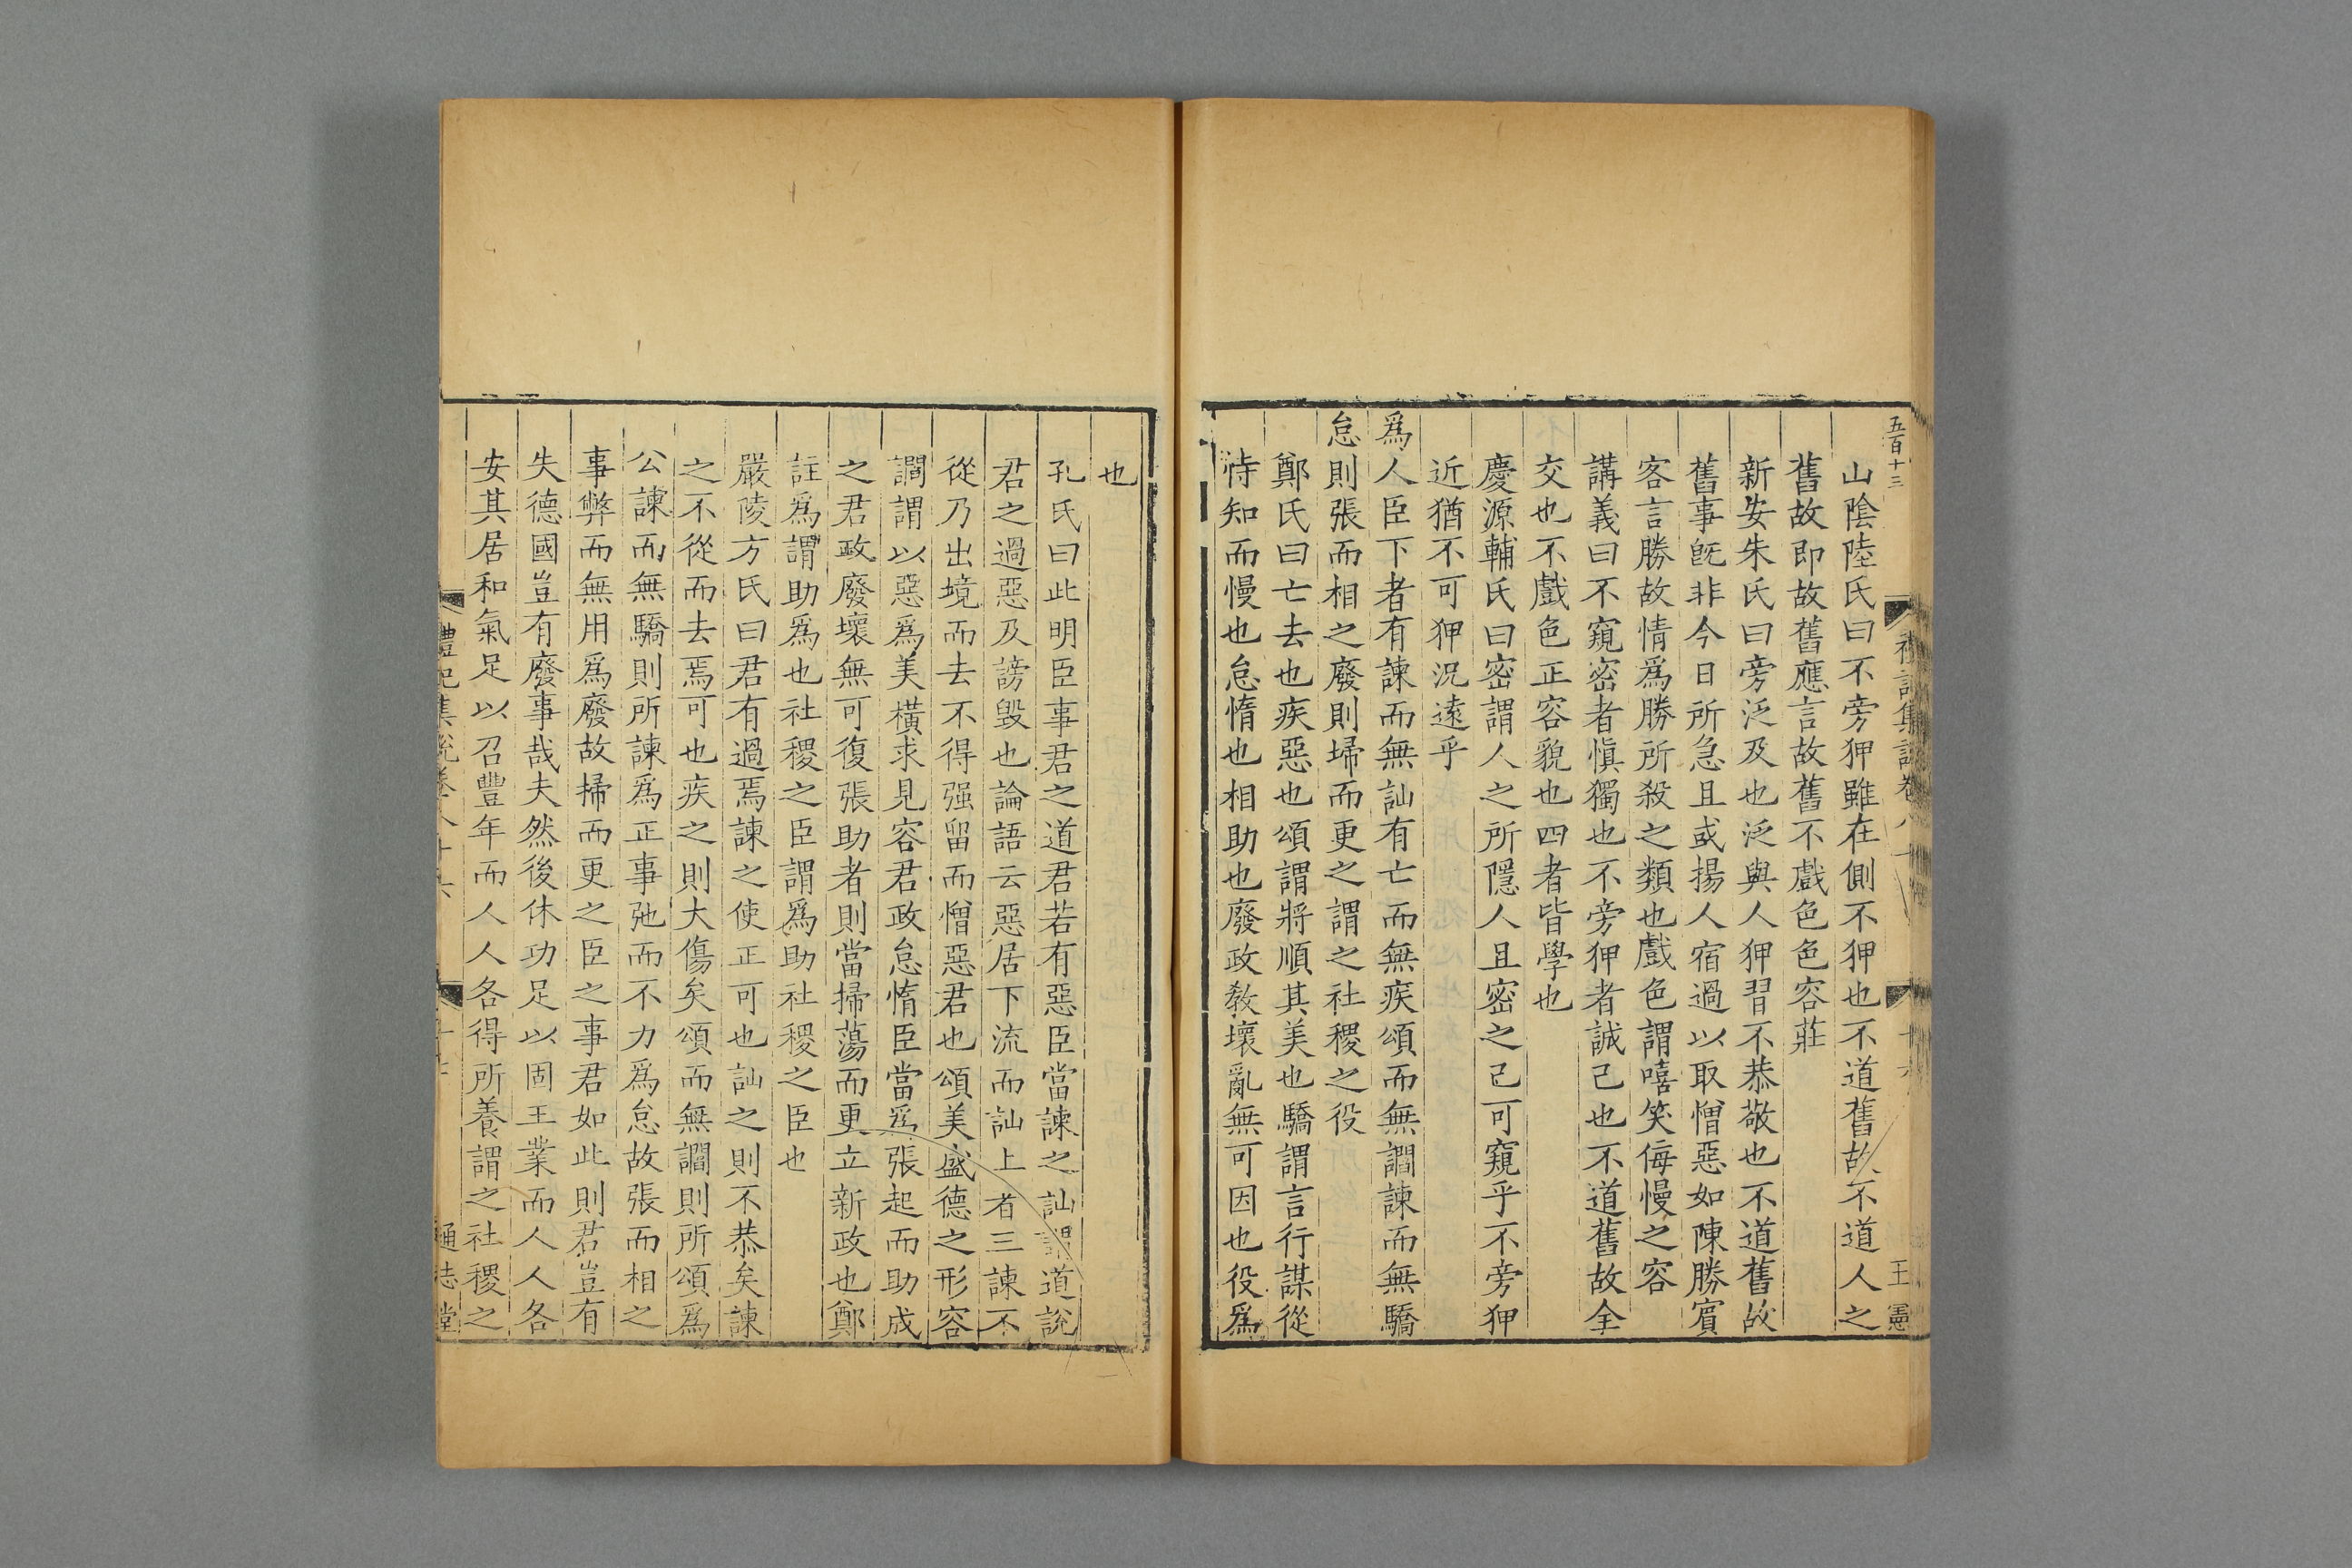 五百十三
山陰陸氏曰不旁狎雖在側不狎也不道舊故不道人之
舊故即故舊應言故舊不戲色色容莊
新安朱氏曰旁泛及也泛與人狎習不恭敬也不道舊故
舊事旣非今日所急且或揚人宿過以取憎惡如陳勝賓
客言勝故情爲勝所殺之類也戲色謂嘻笑侮慢之容
講義曰不窺密者愼獨也不旁狎者誠己也不道舊故全
交也不戲色正容貌也四者皆學也
慶源輔氏曰密謂人之所隱人且密之己可窺乎不旁狎
近猶不可狎況遠乎
爲人臣下者有諫而無訕有亡而無疾頌而無讇諫而無驕
怠則張而相之廢則埽而更之謂之社稷之役
鄭氏曰亡去也疾惡也頌謂將順其美也驕謂言行謀從
恃知而慢也怠惰也相助也廢政敎壞亂無可因也役爲
王憲
也
孔氏曰此明臣事君之道君若有惡臣當諫之訕謂道說
君之過惡及謗毁也論語云惡居下流而訕上者三諫不
從乃出境而去不得强留而憎惡君也頌美盛德之形容
讇謂以惡爲美橫求見容君政怠惰臣當爲張起而助成
之君政廢壞無可復張助者則當掃蕩而更立新政也鄭
註爲謂助爲也社稷之臣謂爲助社稷之臣也
嚴陵方氏曰君有過焉諫之使正可也訕之則不恭矣諫
之不從而去焉可也疾之則大傷矣頌而無讇則所頌爲
公諫而無驕則所諫爲正事弛而不力爲怠故張而相之
事弊而無用爲廢故掃而更之臣之事君如此則君豈有
失德國豈有廢事哉夫然後休功足以固王業而人人各
安其居和氣足以召豐年而人人各得所養謂之社稷之
禮記集說卷八十六
通志堂